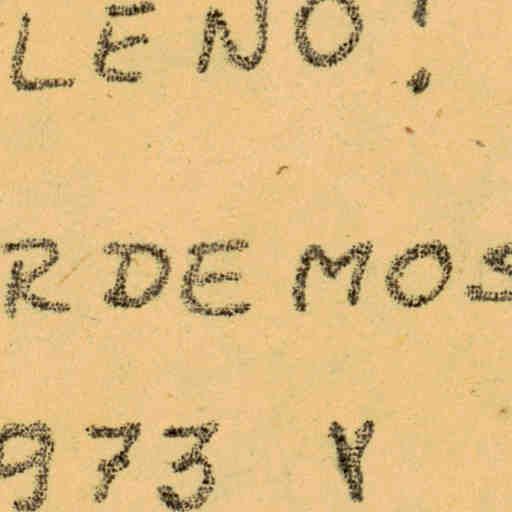 LENO!
RDEMOS
973 Y